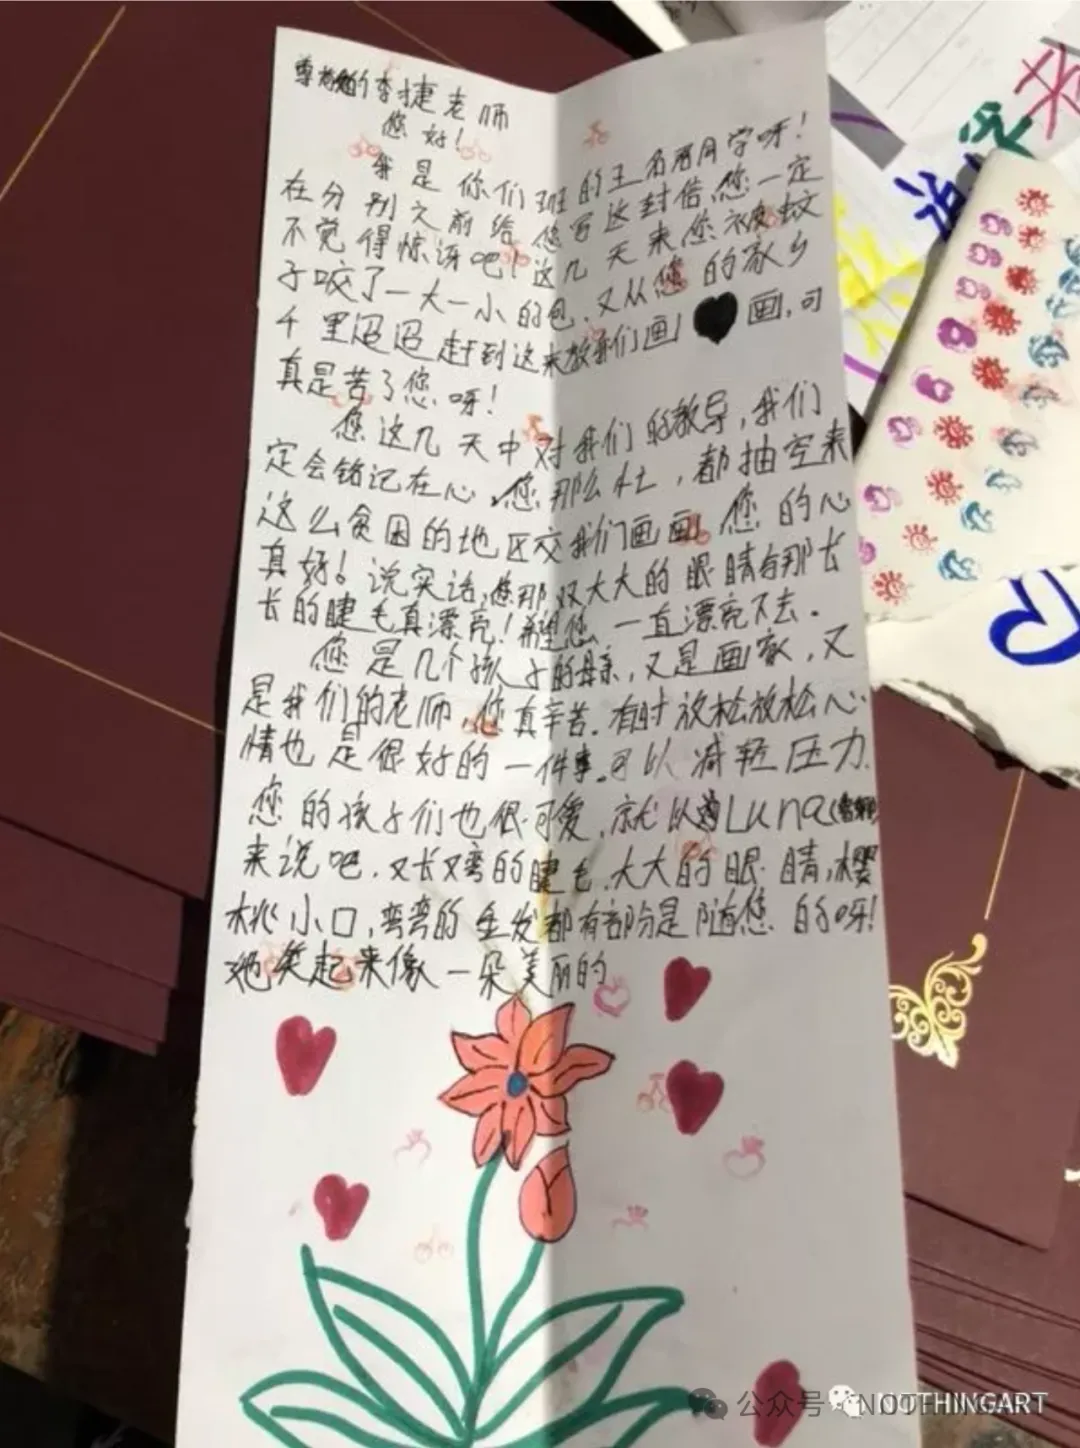 尊敬的李捷老师
您好!
我是你们班的王名君同学呀!
在分别之前给您写这封信,您一定
不觉得惊讶吧!这几天来您被蚊
子咬了一大一小的包,又从您的家乡
千里迢迢赶到这来教我们画画,可
真是苦了您呀!
您这几天中对我们的教导,我们
定会铭记在心。您那么忙,都抽空来
这么贫困的地区交我们画画,您的心
真好!说实话,您那双大大的眼睛与那长
长的睫毛真漂亮!希望您一直漂亮下去。
您是几个孩子的母亲,又是画家,又
是我们的老师,您真辛苦.有时放松放松心
情也是很好的一件事。可以减轻压力.
您的孩子们也很可爱,就以Luna
来说吧.又长又弯的睫毛.大大的眼睛,樱
桃小口,弯弯的金发都有部份是随您的呀!
她笑起来像一朵美丽的
公众号
NOTHINGART